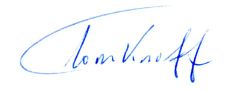 Tom Knoff